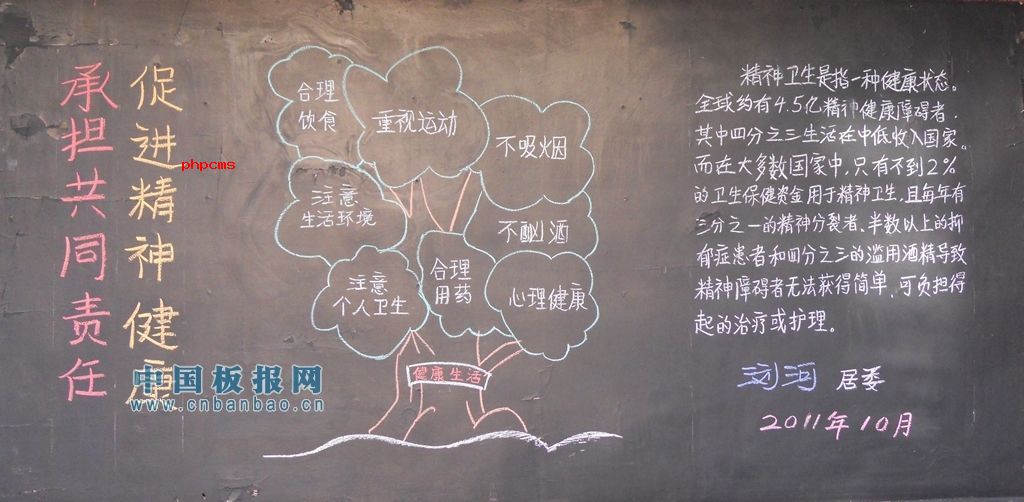 促进精神健康
承担共同责任
phpcms
合理
饮食
重视运动
不吸烟
注意
生活环境
不酗酒
注意
个人卫生
合理
用药
心理健康
健康生活
精神卫生是指一种健康状态。
全球约有4.5亿精神健康障碍者,
其中四分之三生活在中低收入国家。
而在大多数国家中,只有不到2%
的卫生保健资金用于精神卫生,且每年有
三分之一的精神分裂者、半数以上的抑
郁症患者和四分之三的滥用酒精导致
精神障碍者无法获得简单、可负担得
起的治疗或护理。
浏河 居委
2011年10月
中国板报网
www.cnbanbao.cn